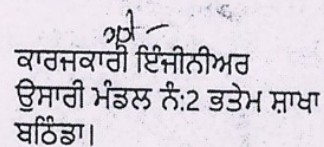 ਕਾਰਜਕਾਰੀ ਇੰਜੀਨੀਅਰ
ਉਸਾਰੀ ਮੰਡਲ ਨੰ:2 ਭਤੇਮ ਸ਼ਾਖਾ
ਬਠਿੰਡਾ।